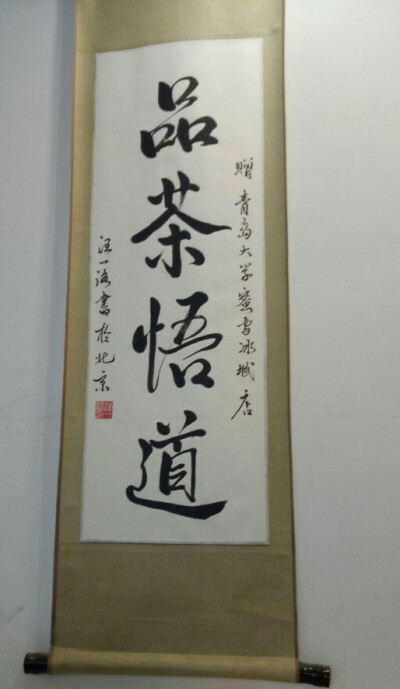 赠青岛大学蜜雪冰城店
品茶悟道
汪一洛书于北京